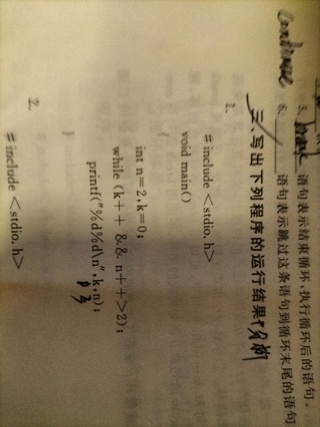 5. break 语句表示结束循环,执行循环后的语句。
6. continue 语句表示跳过这条语句到循环末尾的语句
三、写出下列程序的运行结果 分析
1.
# include <stdio. h>
void main()
{
int n=2,k=0;
while (k++ && n++>2);
printf("%d%d\n",k,n);
}
2.
# include <stdio. h>